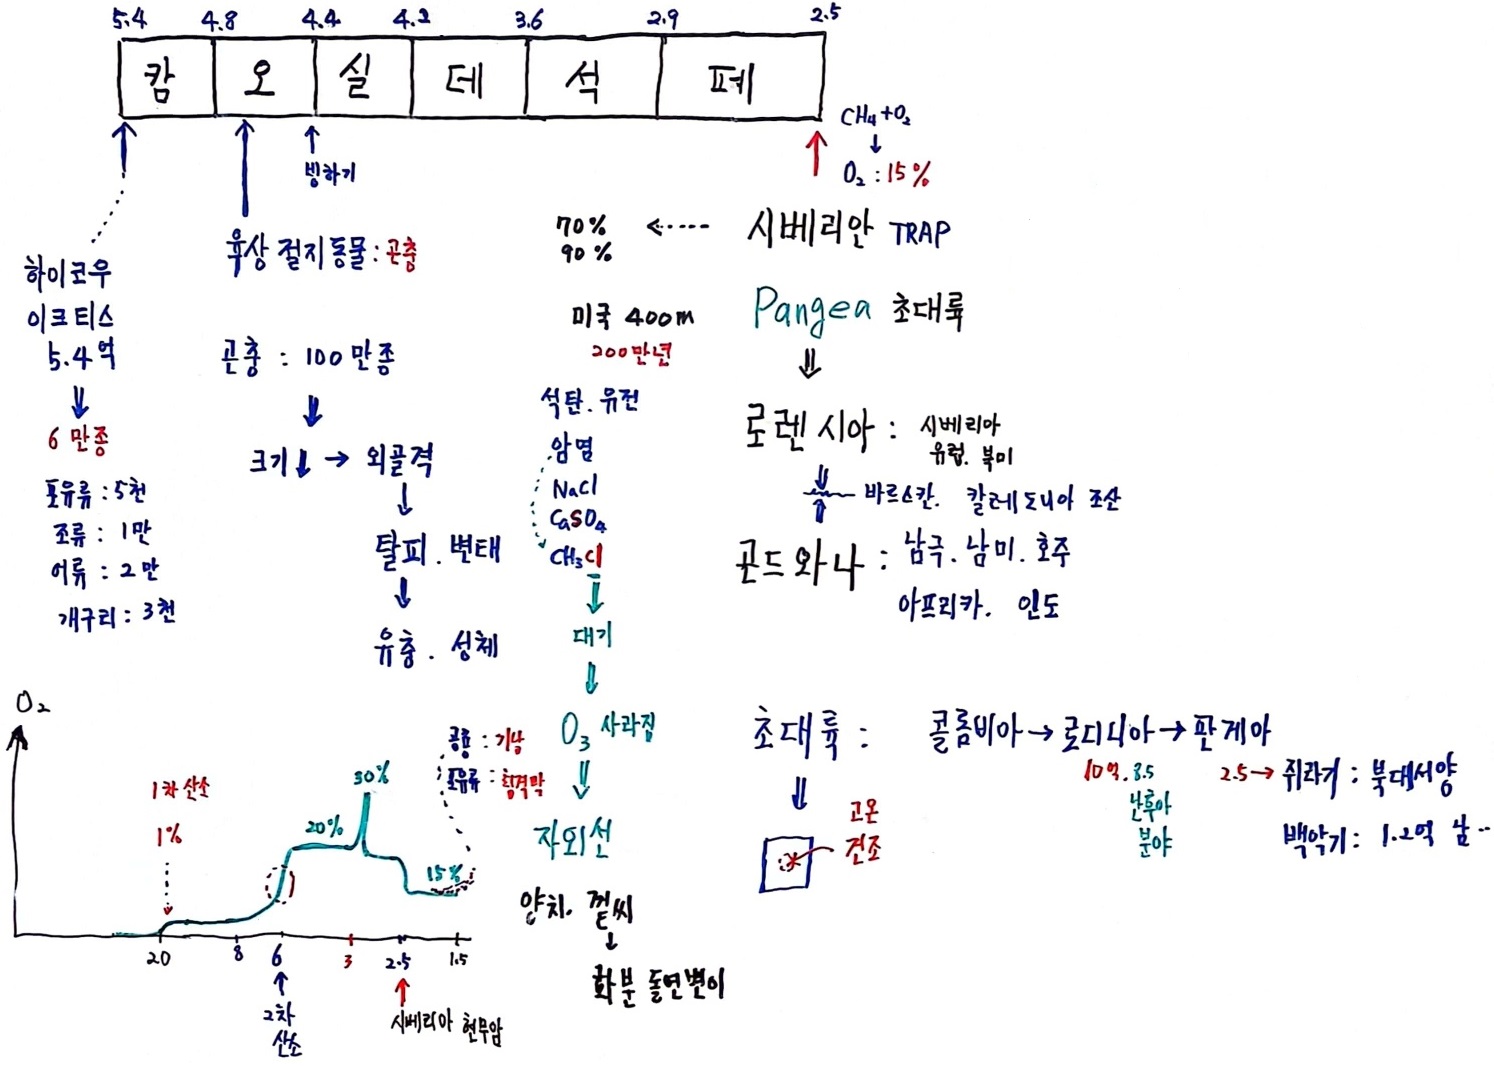 5.4 4.8 4.4 4.2 3.6 2.9 2.5
캄 오 실 데 석 페
CH₄+O₂
O₂ : 15%
빙하기
시베리안 TRAP
70%
90%
육상 절지동물 : 곤충
하이코우
이크티스
5.4억
6만종
포유류 : 5천
조류 : 1만
어류 : 2만
개구리 : 3천
곤충 : 100만종
크기↓ → 외골격
탈피. 변태
유충. 성체
미국 400m
200만년
석탄. 유전
암염
NaCl
CaSO₄
CH₃Cl
대기
O₃ 사라짐
자외선
양치. 겉씨
화분 돌연변이
Pangea 초대륙
로렌시아 : 시베리아
유럽. 북미
바르스칸. 칼레도니아 조산
곤드와나 : 남극. 남미. 호주
아프리카. 인도
초대륙 : 콜롬비아 → 로디니아 → 판게아
10억. 8.5
난후아
분야
2.5 → 쥐라기 : 북대서양
백악기 : 1.2억 남..
고온
건조
O₂
1차 산소
1%
20%
30%
15%
공룡 : 기낭
포유류 : 횡격막
20 8 6 3 2.5 1.5
2차
산소
시베리아 현무암